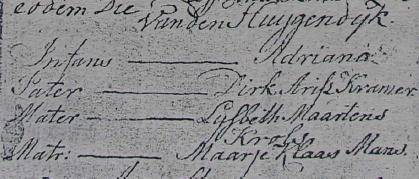 eodem Die
Van den Huijgendijk.
Infans — Adriana
Pater — Dirk Arisz Kramer
Mater — Lijsbeth Maartens
Kross
Matr: — Maartje Klaas Mans.